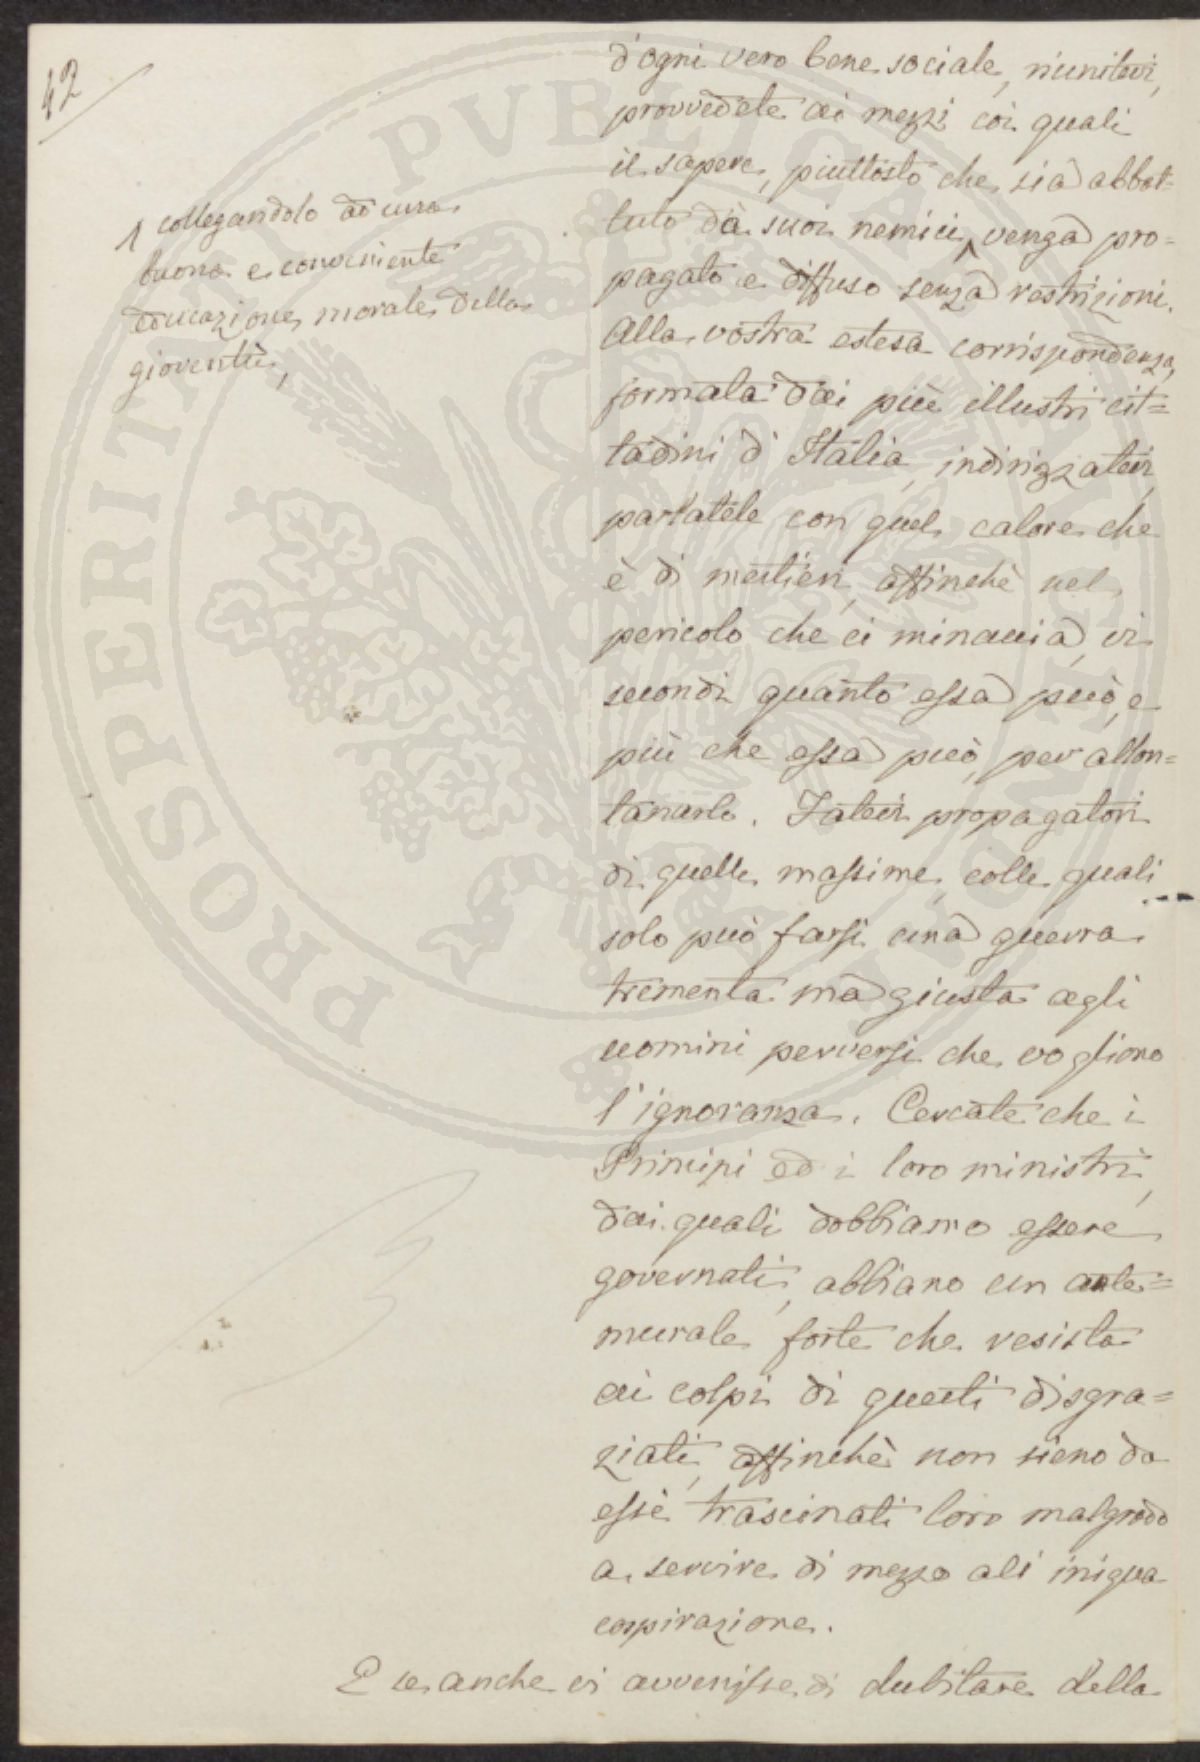 42
d'ogni vero bene sociale, riunitevi,
provvedete ai mezzi coi quali
il sapere, piuttosto che sia abbat=
tuto da suoi nemici, venga pro=
pagato e diffuso senza restrizioni.
Alla vostra estesa corrispondenza,
formata dai più illustri cit=
tadini d'Italia, indirizzatevi,
parlatele con quel calore che
è di mestieri, affinchè nel
pericolo che ci minaccia, vi
secondi quanto essa può, e
più che essa può, per allon=
tanarlo. Fatevi propagatori
di quelle massime, colle quali
solo può farsi una guerra
trementa ma giusta agli
uomini perversi che vogliono
l'ignoranza. Cercate che i
Principi ed i loro ministri,
dai quali dobbiamo essere
governati, abbiano un ante=
murale forte che resista
ai colpi di questi disgra=
ziati, affinchè non sieno da
essi trascinati loro malgrado
a servire di mezzo ali iniqua
cospirazione.
E se anche vi avvenisse di dubitare della
1 collegandolo ad una
buona e conveniente
educazione morale della
gioventù,
PROSPERITATI PVBLICAE